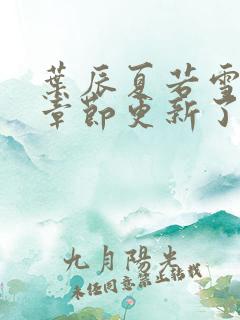 葉辰夏若雪
章節更新了
九月陽光
未經同意禁止轉載